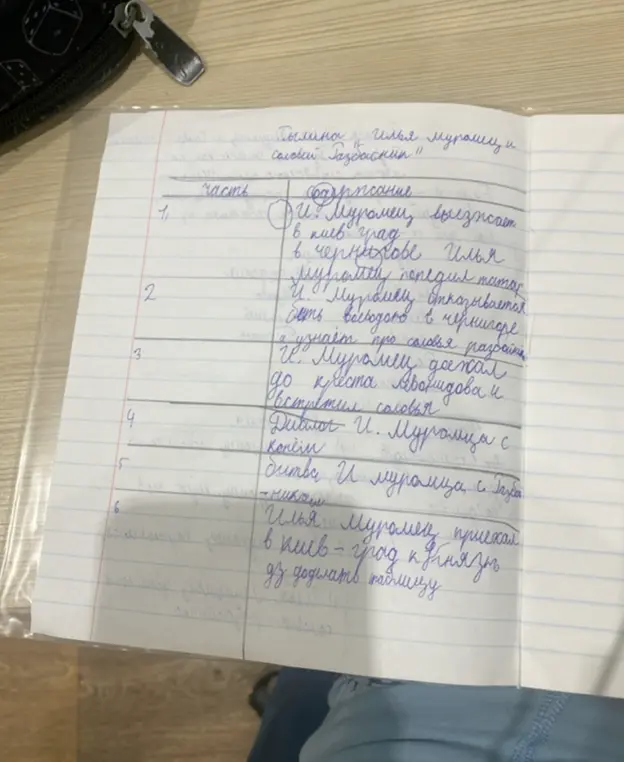 Былина "Илья муромец и
соловей Разбойник"
часть содержание
1. И. Муромец выезжает
в киев град
в чернигове Илья
Муромец победил татар
2 И. Муромец отказывается
быть воеводою в чернигове
и узнаёт про соловья разбойника
3 И. Муромец доехал
до креста Леванидова и
встретил соловья
4 Диалог И. Муромца с
конём
5 битва И муромца с Разбо
-никам
6 Илья Муромец приехал
в киев - град к князю
дз доделать таблицу